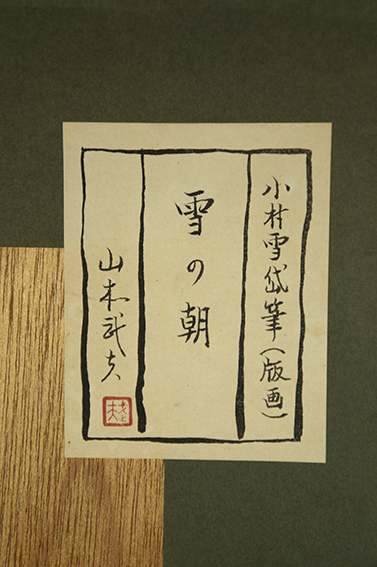 小村雪岱筆(版画)
雪の朝
山本武夫